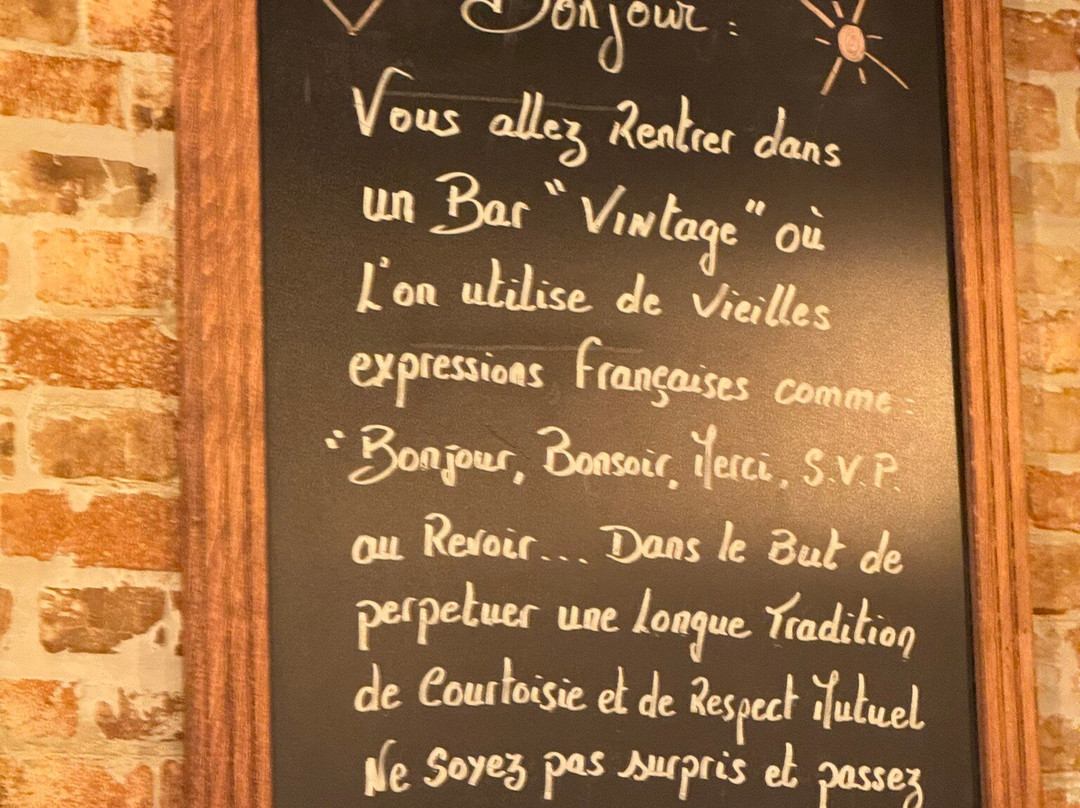 Bonjour :
Vous allez Rentrer dans
un Bar "Vintage" où
L'on utilise de vieilles
expressions françaises comme :
"Bonjour, Bonsoir, Merci, S.V.P.
au Revoir... Dans le But de
perpetuer une Longue Tradition
de Courtoisie et de Respect Mutuel
Ne Soyez pas surpris et passez